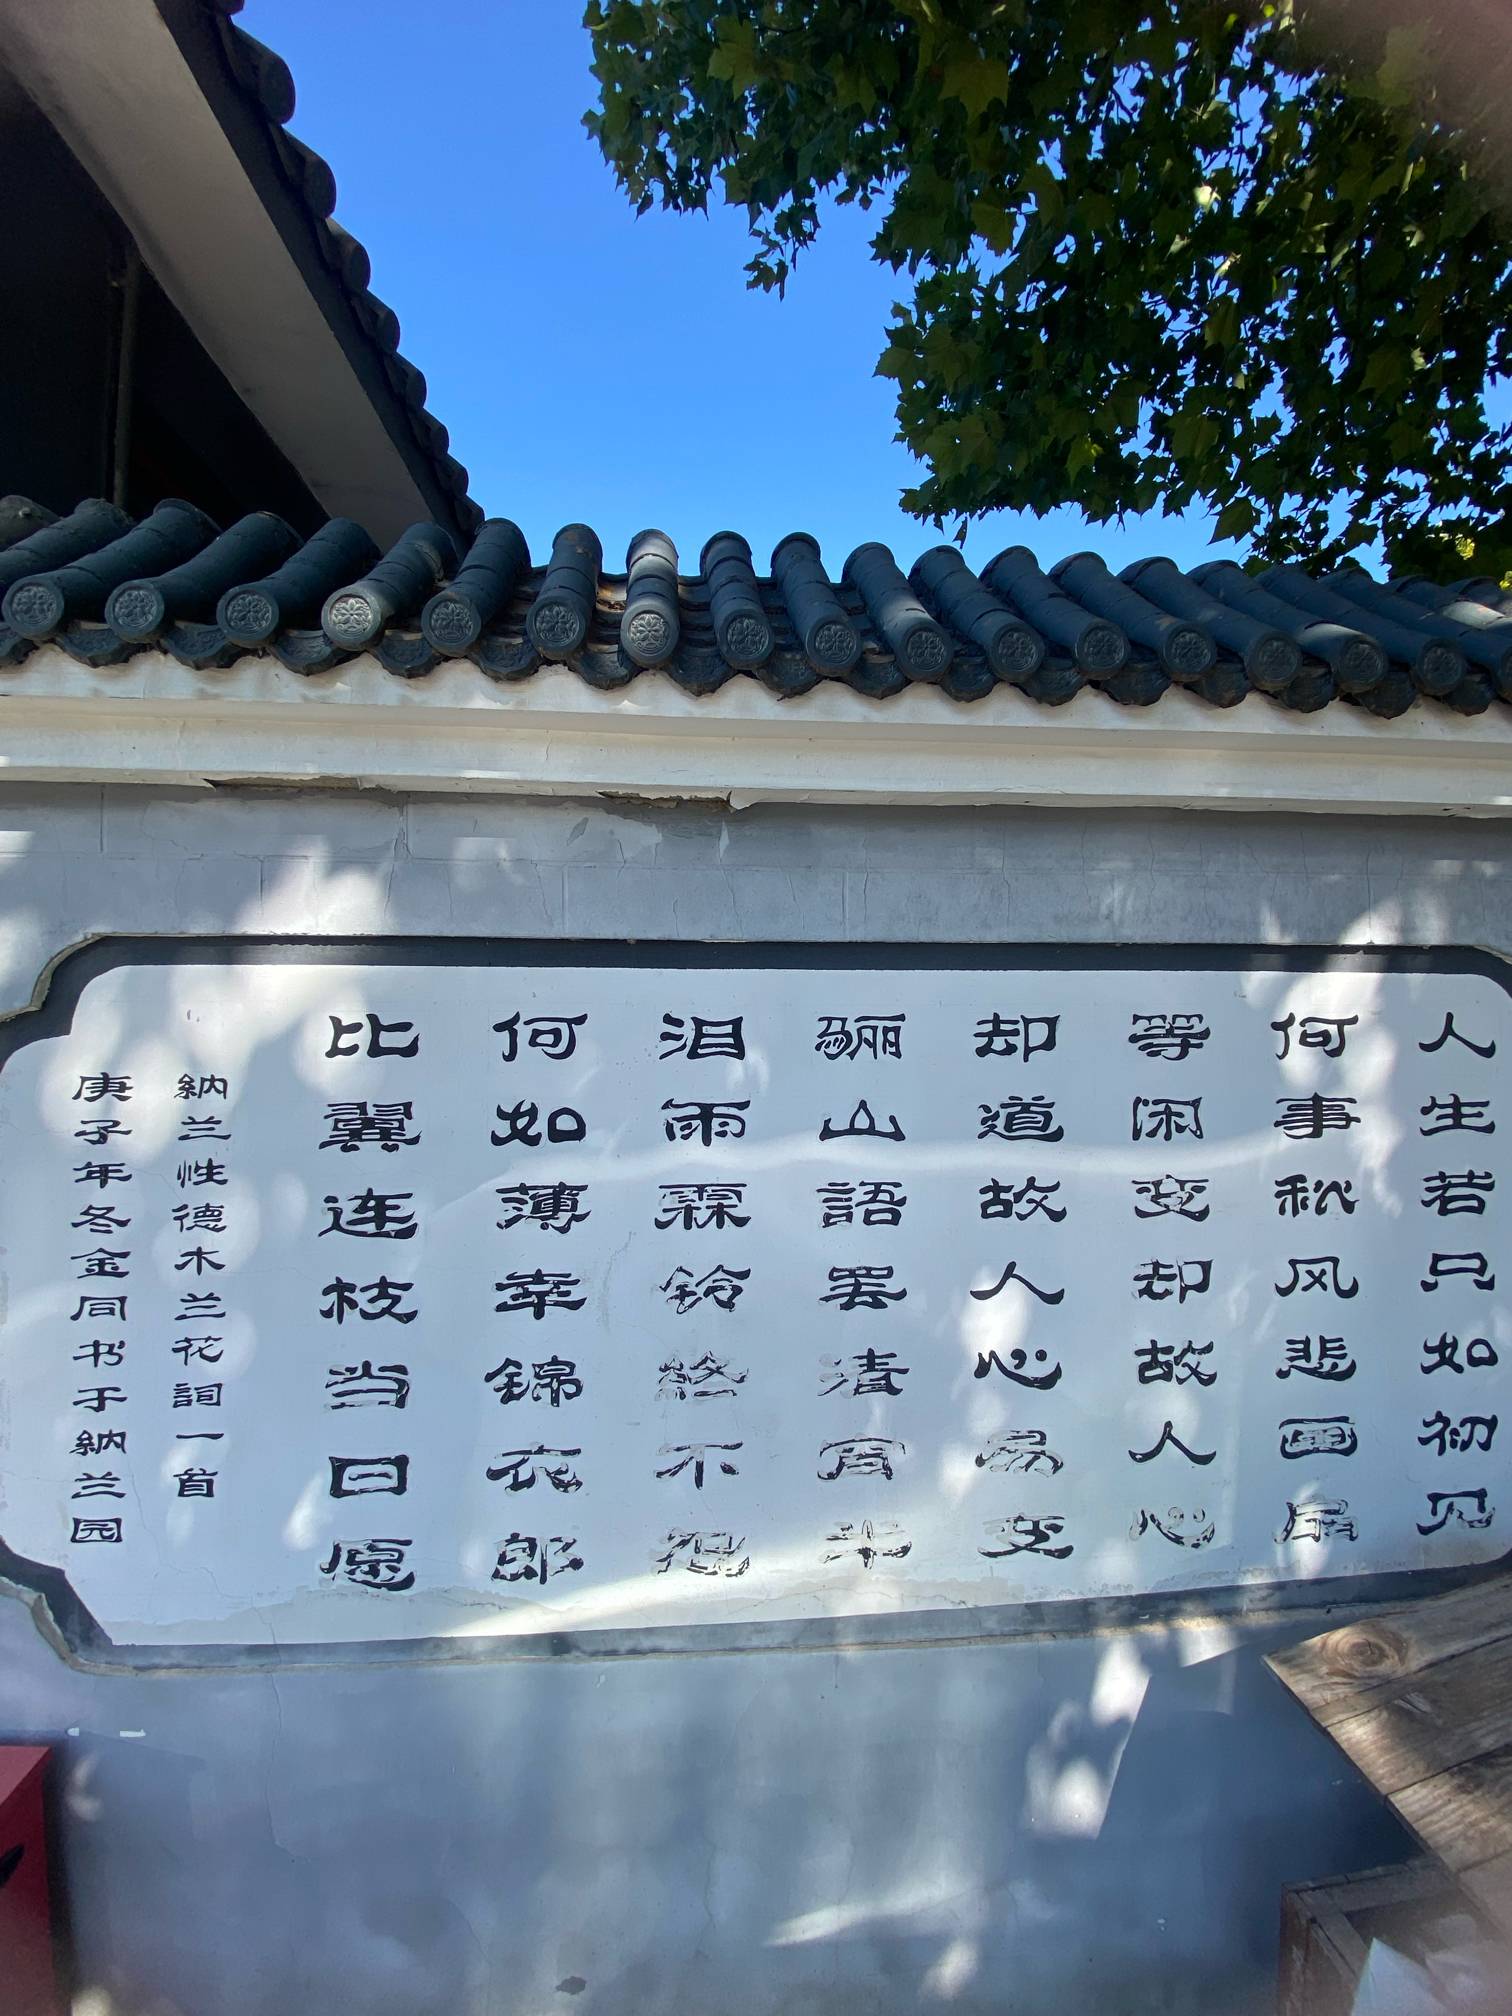 人生若只如初见
何事秋风悲画扇
等闲变却故人心
却道故人心易变
骊山語罢清宵半
泪雨霖鈴終不怨
何如薄幸锦衣郎
比翼连枝当日愿
納兰性德木兰花詞一首
庚子年冬金同书于納兰园